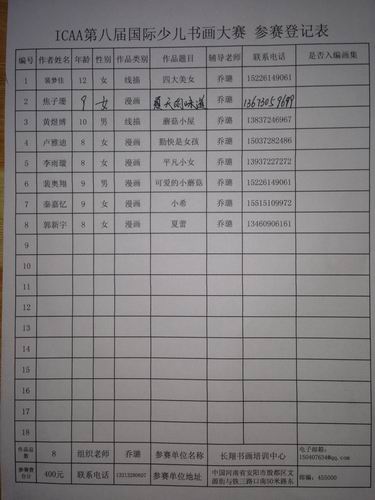 ICAA第八届国际少儿书画大赛 参赛登记表
编号 作者姓名 年龄 性别 作品类别 作品题目 辅导老师 联系电话 是否入编画集
1 裴梦佳 12 女 线描 四大美女 乔璐 15226149061
2 焦子珊 9 女 漫画 夏天的味道 乔璐
3 黄煜博 10 男 线描 蘑菇小屋 乔璐 13837246967
4 卢雅迪 8 女 漫画 勤快是女孩 乔璐 15037282486
5 李雨璇 8 女 漫画 平凡小女 乔璐 13937227272
6 裴奥翔 9 男 漫画 可爱的小蘑菇 乔璐 15226149061
7 秦嘉忆 9 女 漫画 小希 乔璐 15515109972
8 郭新宇 8 女 漫画 夏蕾 乔璐 13460906161
9
10
11
12
13
14
15
16
17
18
作品总数 8 组织老师 乔璐 参赛单位名称 长翔书画培训中心 电子邮箱: 150407634@qq.com
参赛费合计 400元 联系电话 参赛单位地址 中国河南省安阳市殷都区文源街与铁三路口南50米路东 邮编: 455000